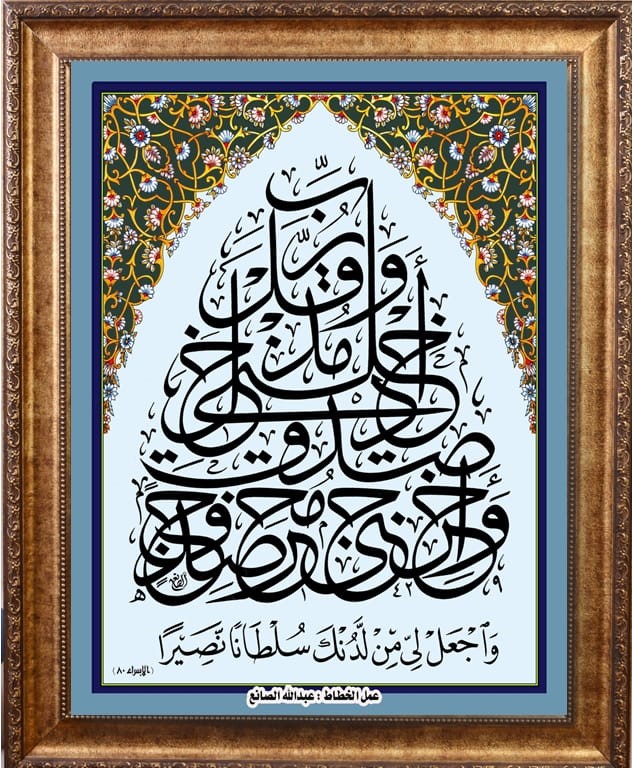 وقل رب أدخلني مدخل صدق وأخرجني مخرج صدق
وَٱجْعَلْ لِّي مِنْ لَّدُنْكَ سُلْطَانًا نَّصِيرًا
(الإسراء ٨٠)
عمل الخطاط : عبدالله الصائغ